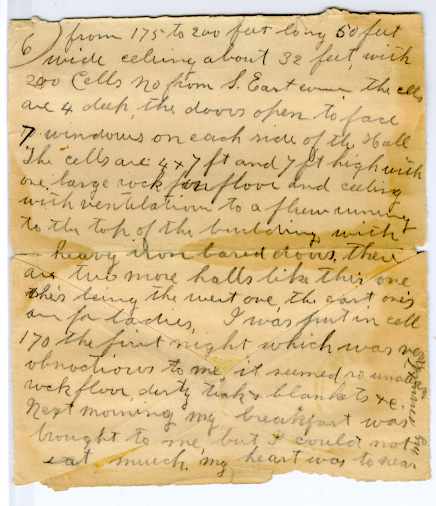 6) from 175 to 200 feet long 50 feet
wide ceiling about 32 feet, with
200 Cells No from S. East corner the cells
are 4 deep, the doors open to face
7 windows on each side of the Hall
The cells are 4 x 7 ft and 7 ft high with
one large rock for floor and ceeling
with ventilation to a flew running
to the top of the building, with
a heavy iron bared doors, there
are two more halls like this one
this being the west one the east one is
for ladies, I was put in cell
170 the first night which was very
obnoctious to me, it seemed so
rock floor, dirty tick & blankets &c.
Next morning my breakfast was
brought to me, but I could not
eat much, my heart was to near